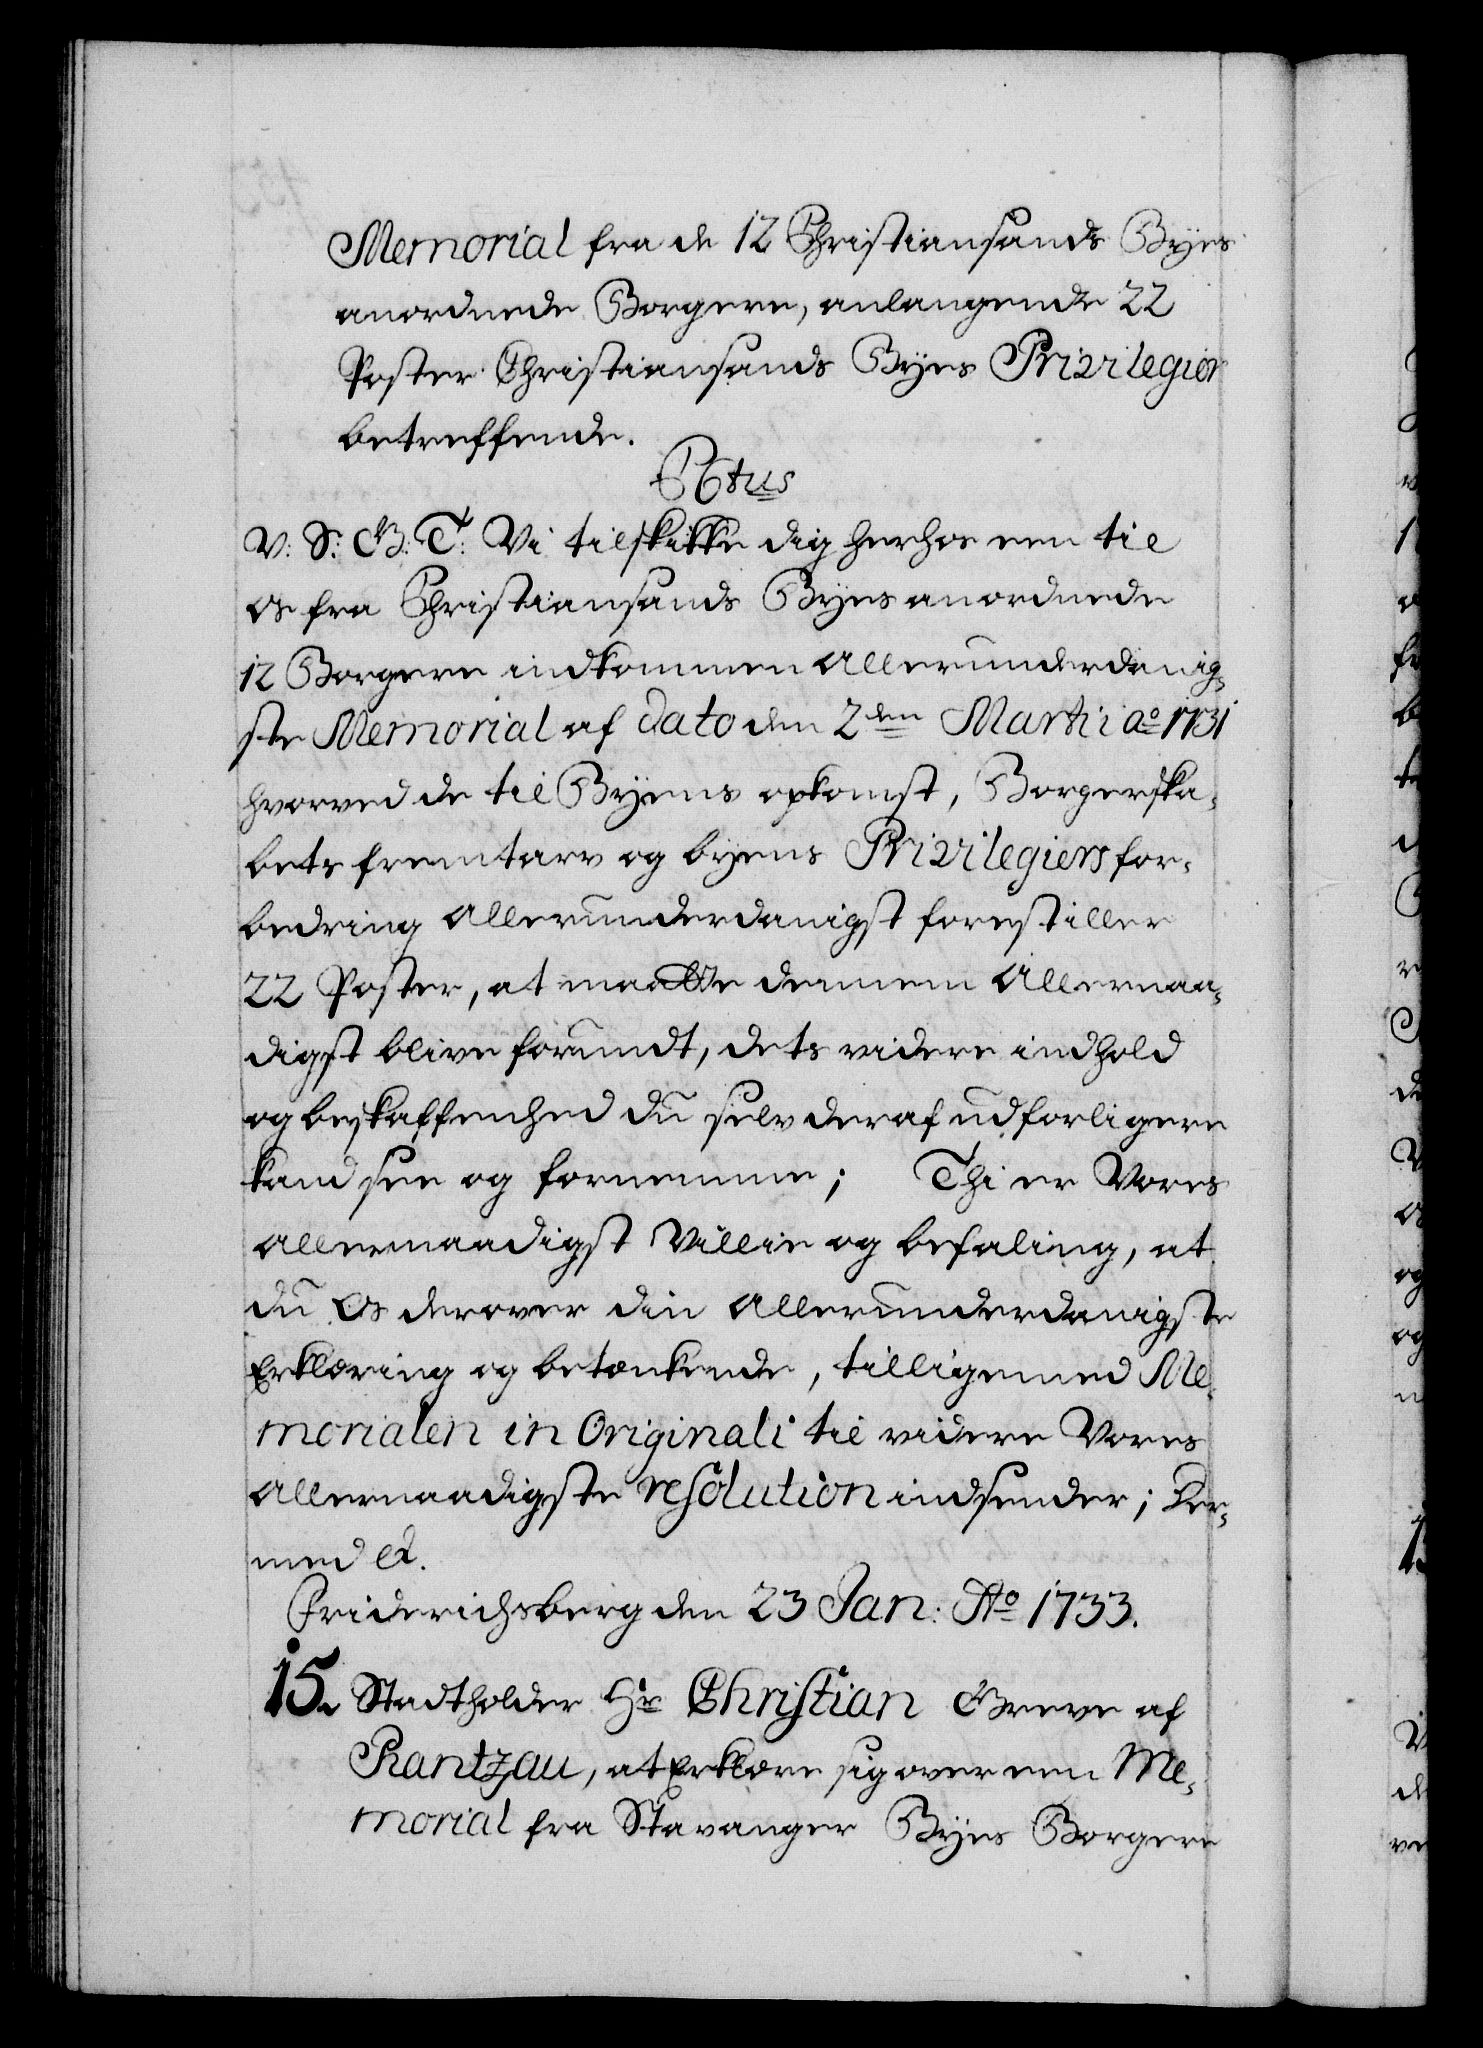 Memorial fra de 12 Christiansands Byes
anordnede Borgere, anlangende 22
Poster Christiansands Byes Privilegier
betreffende.
C6tus
V: S: G: T: Vi tilskikke dig herhos een til
os fra Christiansands Byes anordnede
12 Borgere indkommen allerunderdanig-
ste Memorial af dato den 2den Martii ao 1731
hvorved de til Byens opkomst, Borgerska-
bets fremtarv og byens Privilegiers for-
bedring allerunderdanigst forestiller
22 Poster, at maatte dennem allernaa-
digst blive forundt, dets videre indhold
og beskaffenhed du selv deraf udforligere
kand see og fornemme; Thi er Vores
allernaadigst Villie og befaling, at
du os derover din allerunderdanigste
Erklæring og betænkende, tilligemed Me-
morialen in Originali til videre Vores
allernaadigste resolution indsender; Der-
med et.
Friderichsberg den 23 Jan: Ao 1733.
15. Stadtholder Hr Christian Greve af
Rantzau, at Erklære sig over een Me-
morial fra Stavanger Byes Borgere